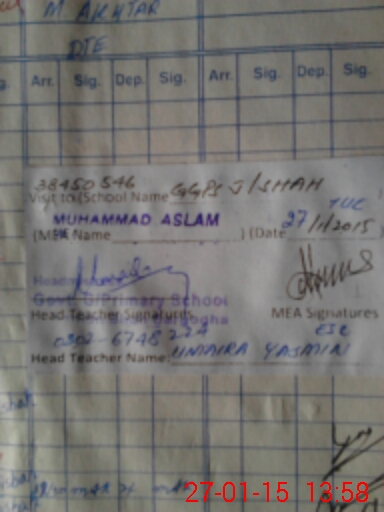 M AKHTAR
DTE
Arr. Sig. Dep. Sig. Arr. Sig. Dep. Sig.
38450 546
Visit to (School Name GGPS J/SHAH
TUE
MUHAMMAD ASLAM
(MEA Name ) (Date 27/1/2015)
Head
Govt. G/Primary School
Head Teacher Signatures
MEA Signatures
0302-6748224
Head Teacher Name: UMAIRA YASMIN
27-01-15 13:58